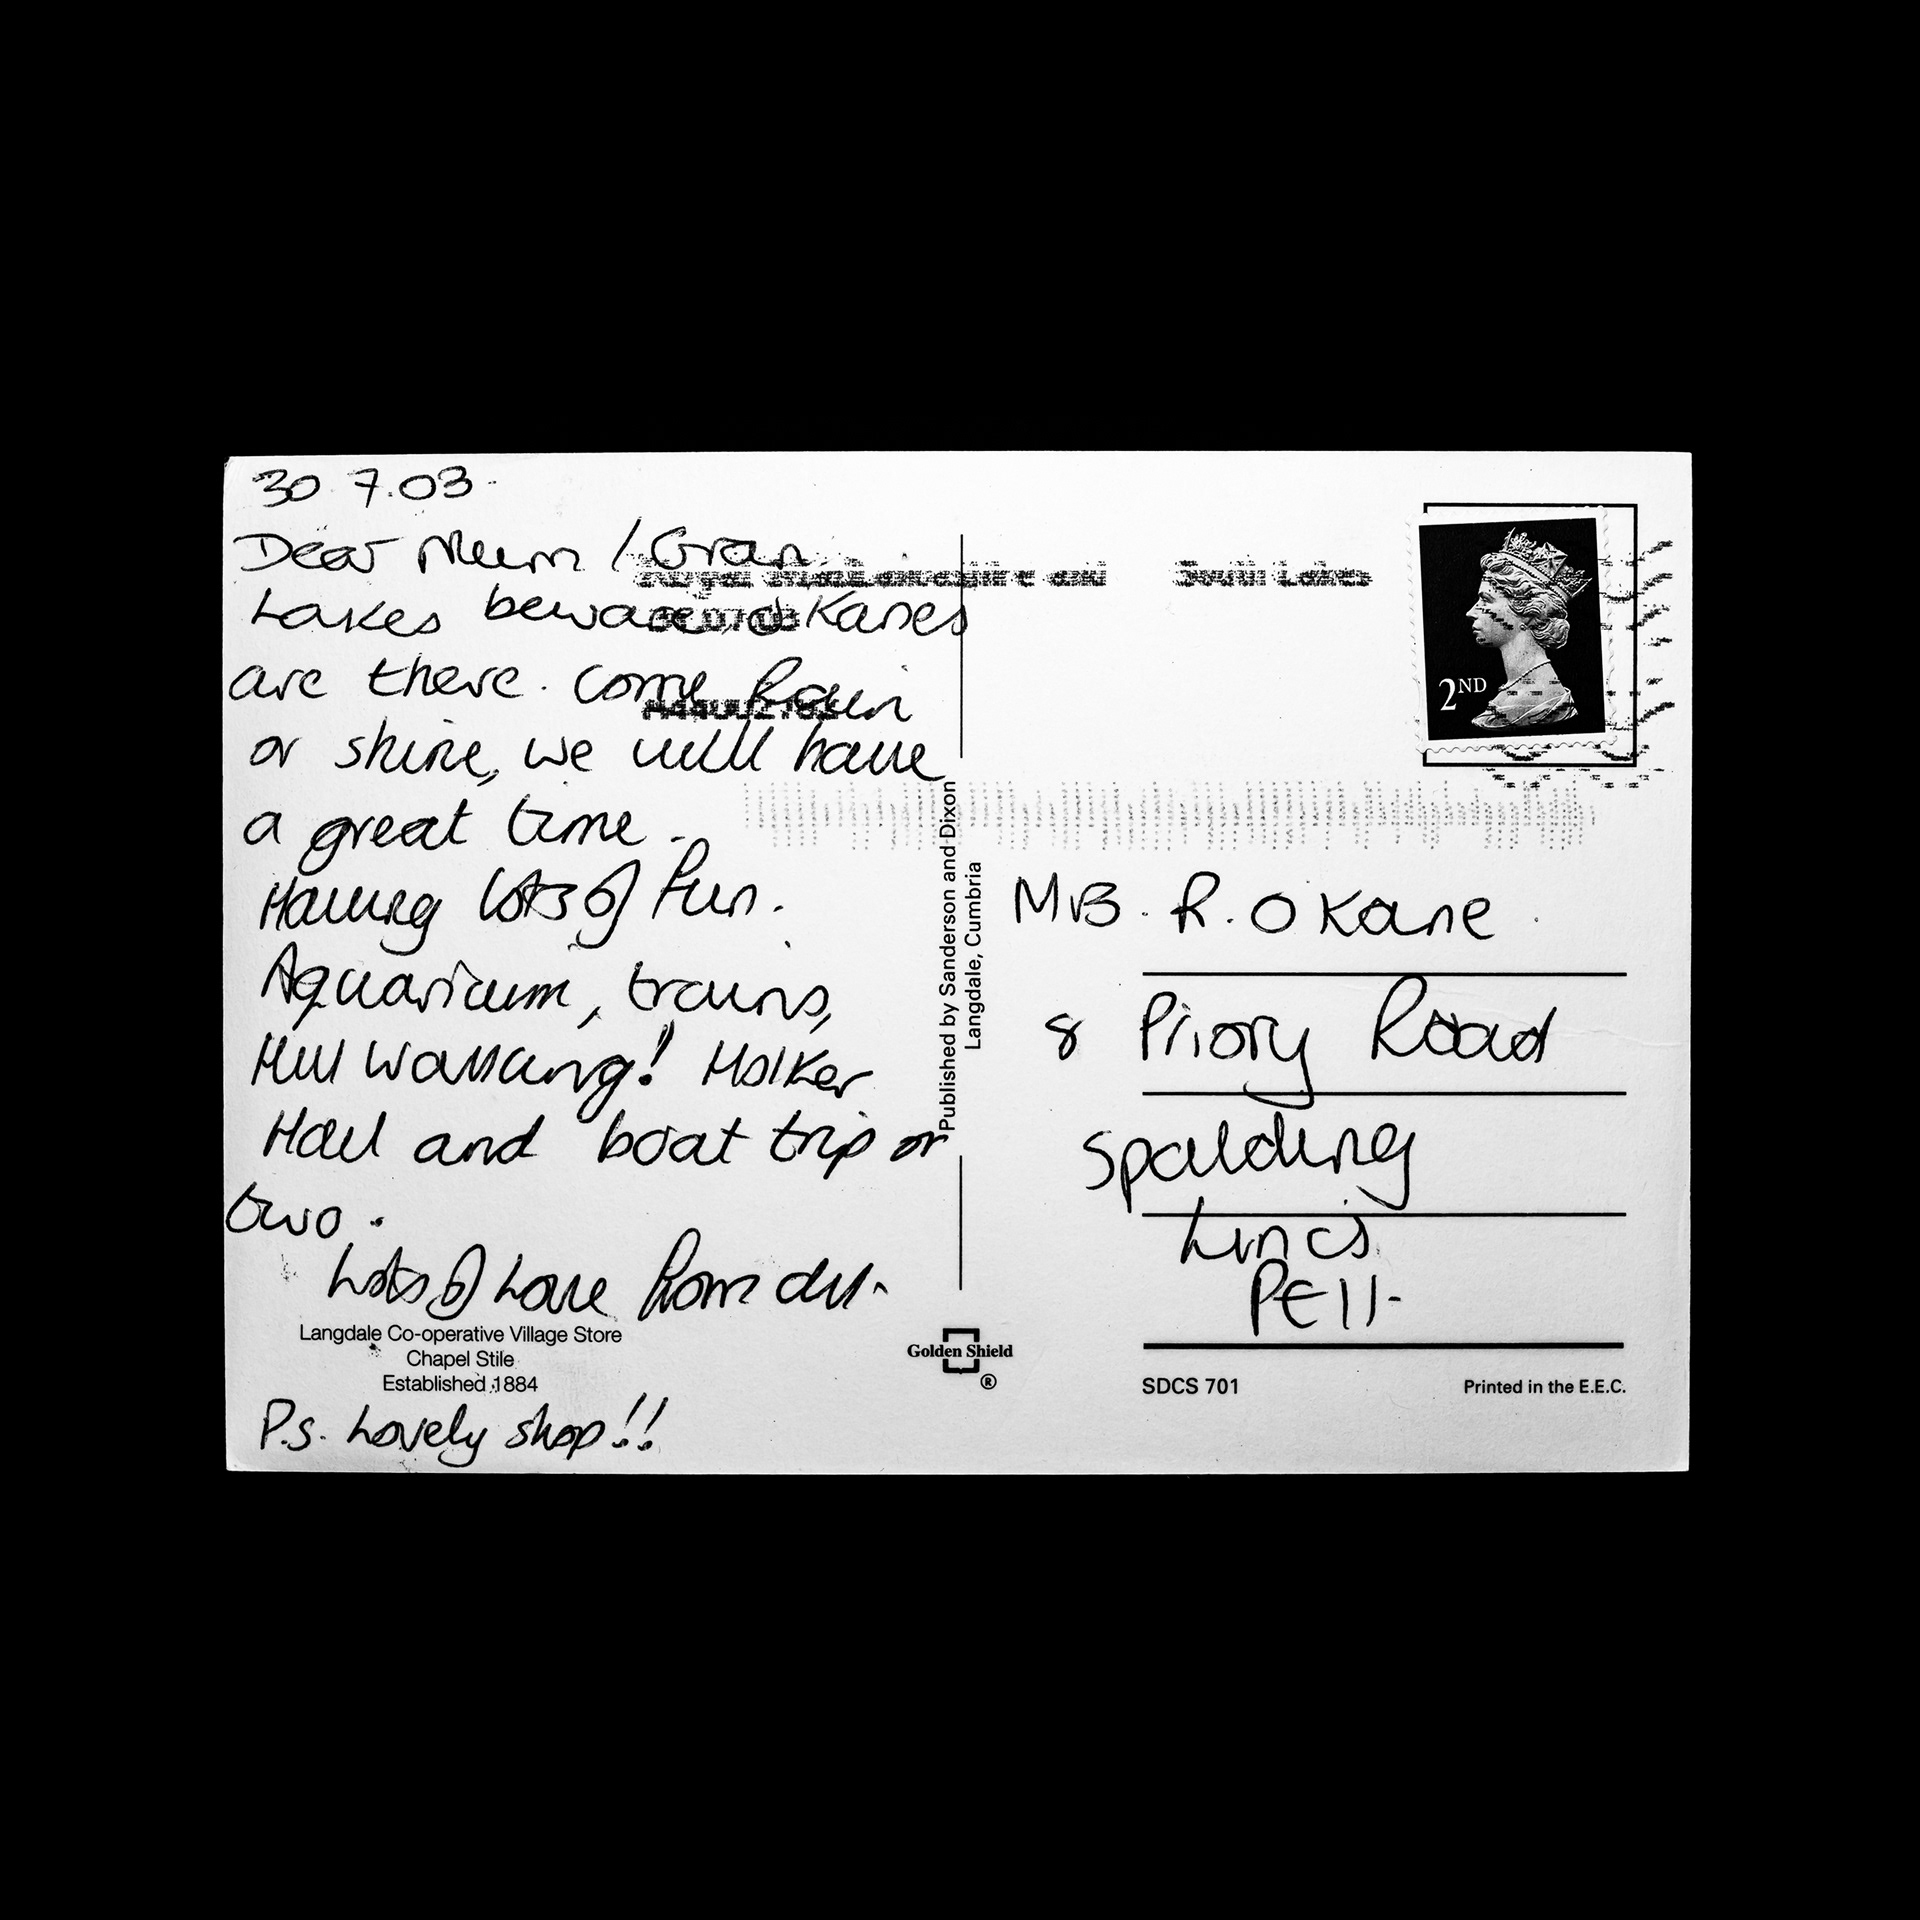 30.7.03
Dear Mum / Gran
Lakes beware, O Kanes
are there. Come Rain
or shine, we will have
a great time.
Having lots of fun.
Aquarium, trains,
Hill walking! Holker
Hall and boat trip or
two.
Lots of Love from all.
Langdale Co-operative Village Store
Chapel Stile
Established 1884
P.s. Lovely shop!!
Published by Sanderson and Dixon
Langdale, Cumbria
Golden Shield
®
Royal Mail Lancashire and South Lakes
2ND
Mrs. R. O Kane.
8 Priory Road
Spalding
Lincs
PE11-
SDCS 701
Printed in the E.E.C.